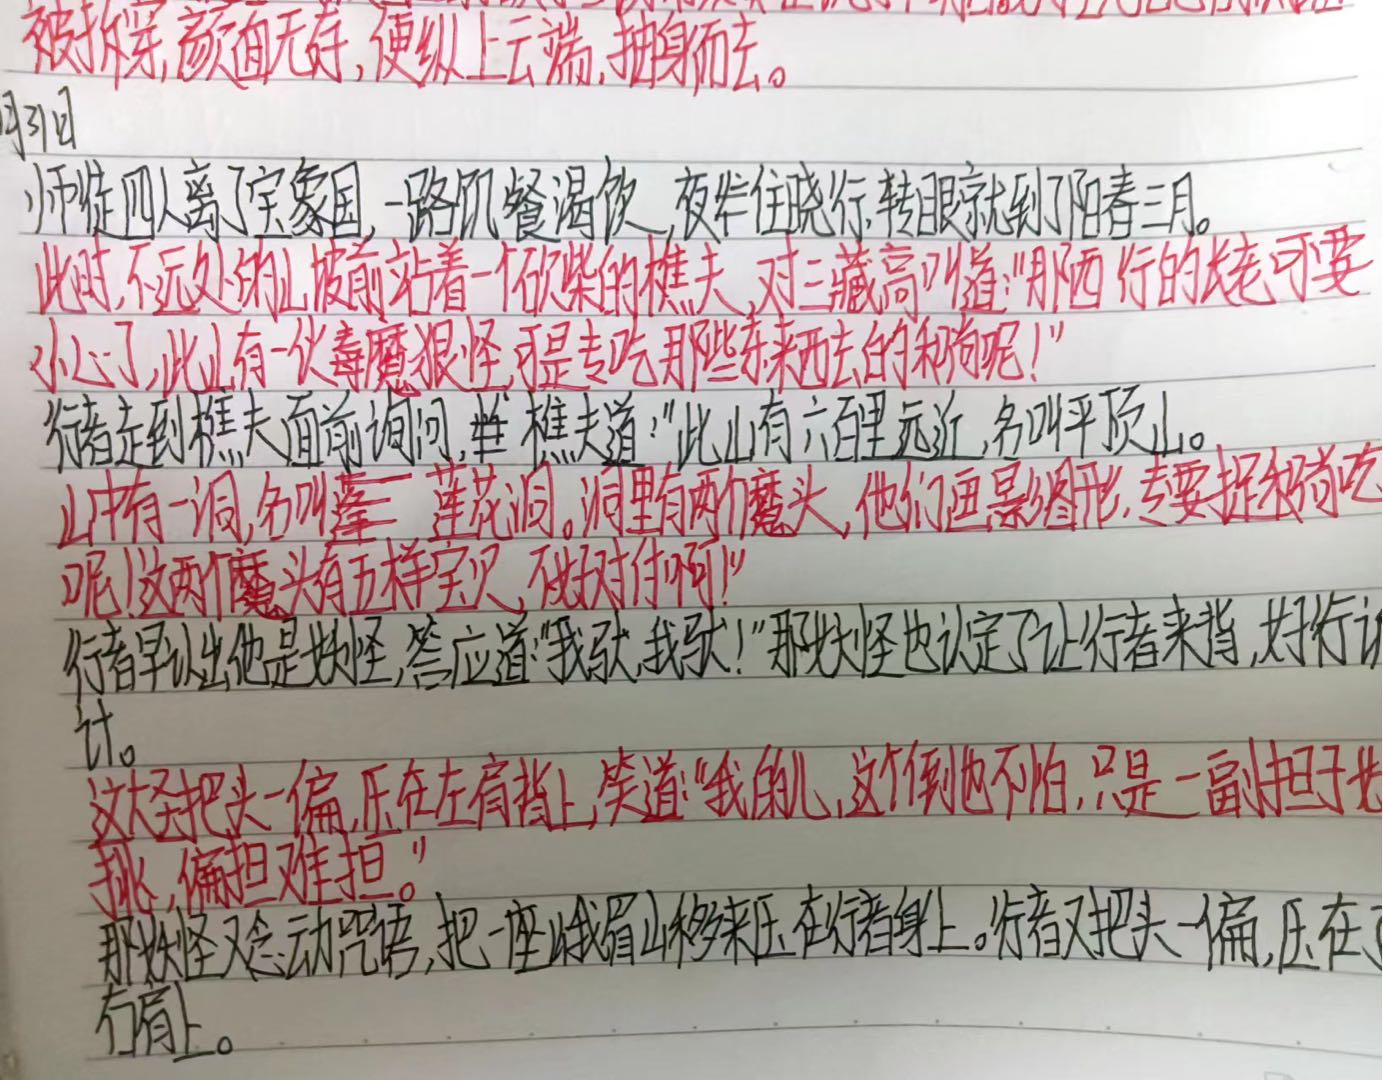 被拆穿,颜面无存,便纵上云端,抽身而去。
月31日
师徒四人离了宝象国,一路饥餐渴饮,夜住晓行,转眼就到了阳春三月。
此时,不远处的山坡前站着一个砍柴的樵夫,对三藏高叫道:"那西行的长老可要
小心了,此山有一伙毒魔狠怪,可是专吃那些东来西去的和尚呢!"
行者走到樵夫面前询问,樵夫道:"此山有六百里远近,名叫平顶山。
山中有一洞,名叫莲花洞。洞里有两个魔头,他们画影图形,专要捉和尚吃
呢!这两个魔头有五样宝贝,不好对付啊!"
行者早认出他是妖怪,答应道:"我驮,我驮!"那妖怪也认定了让行者来背,好行
计。
这大圣把头一偏,压在左肩背上,笑道:"我的儿,这个倒也不怕,只是一副担子
挑,偏担难担。"
那妖怪又念动咒语,把一座峨眉山移来压在行者身上。行者又把头一偏,压在
右肩上。